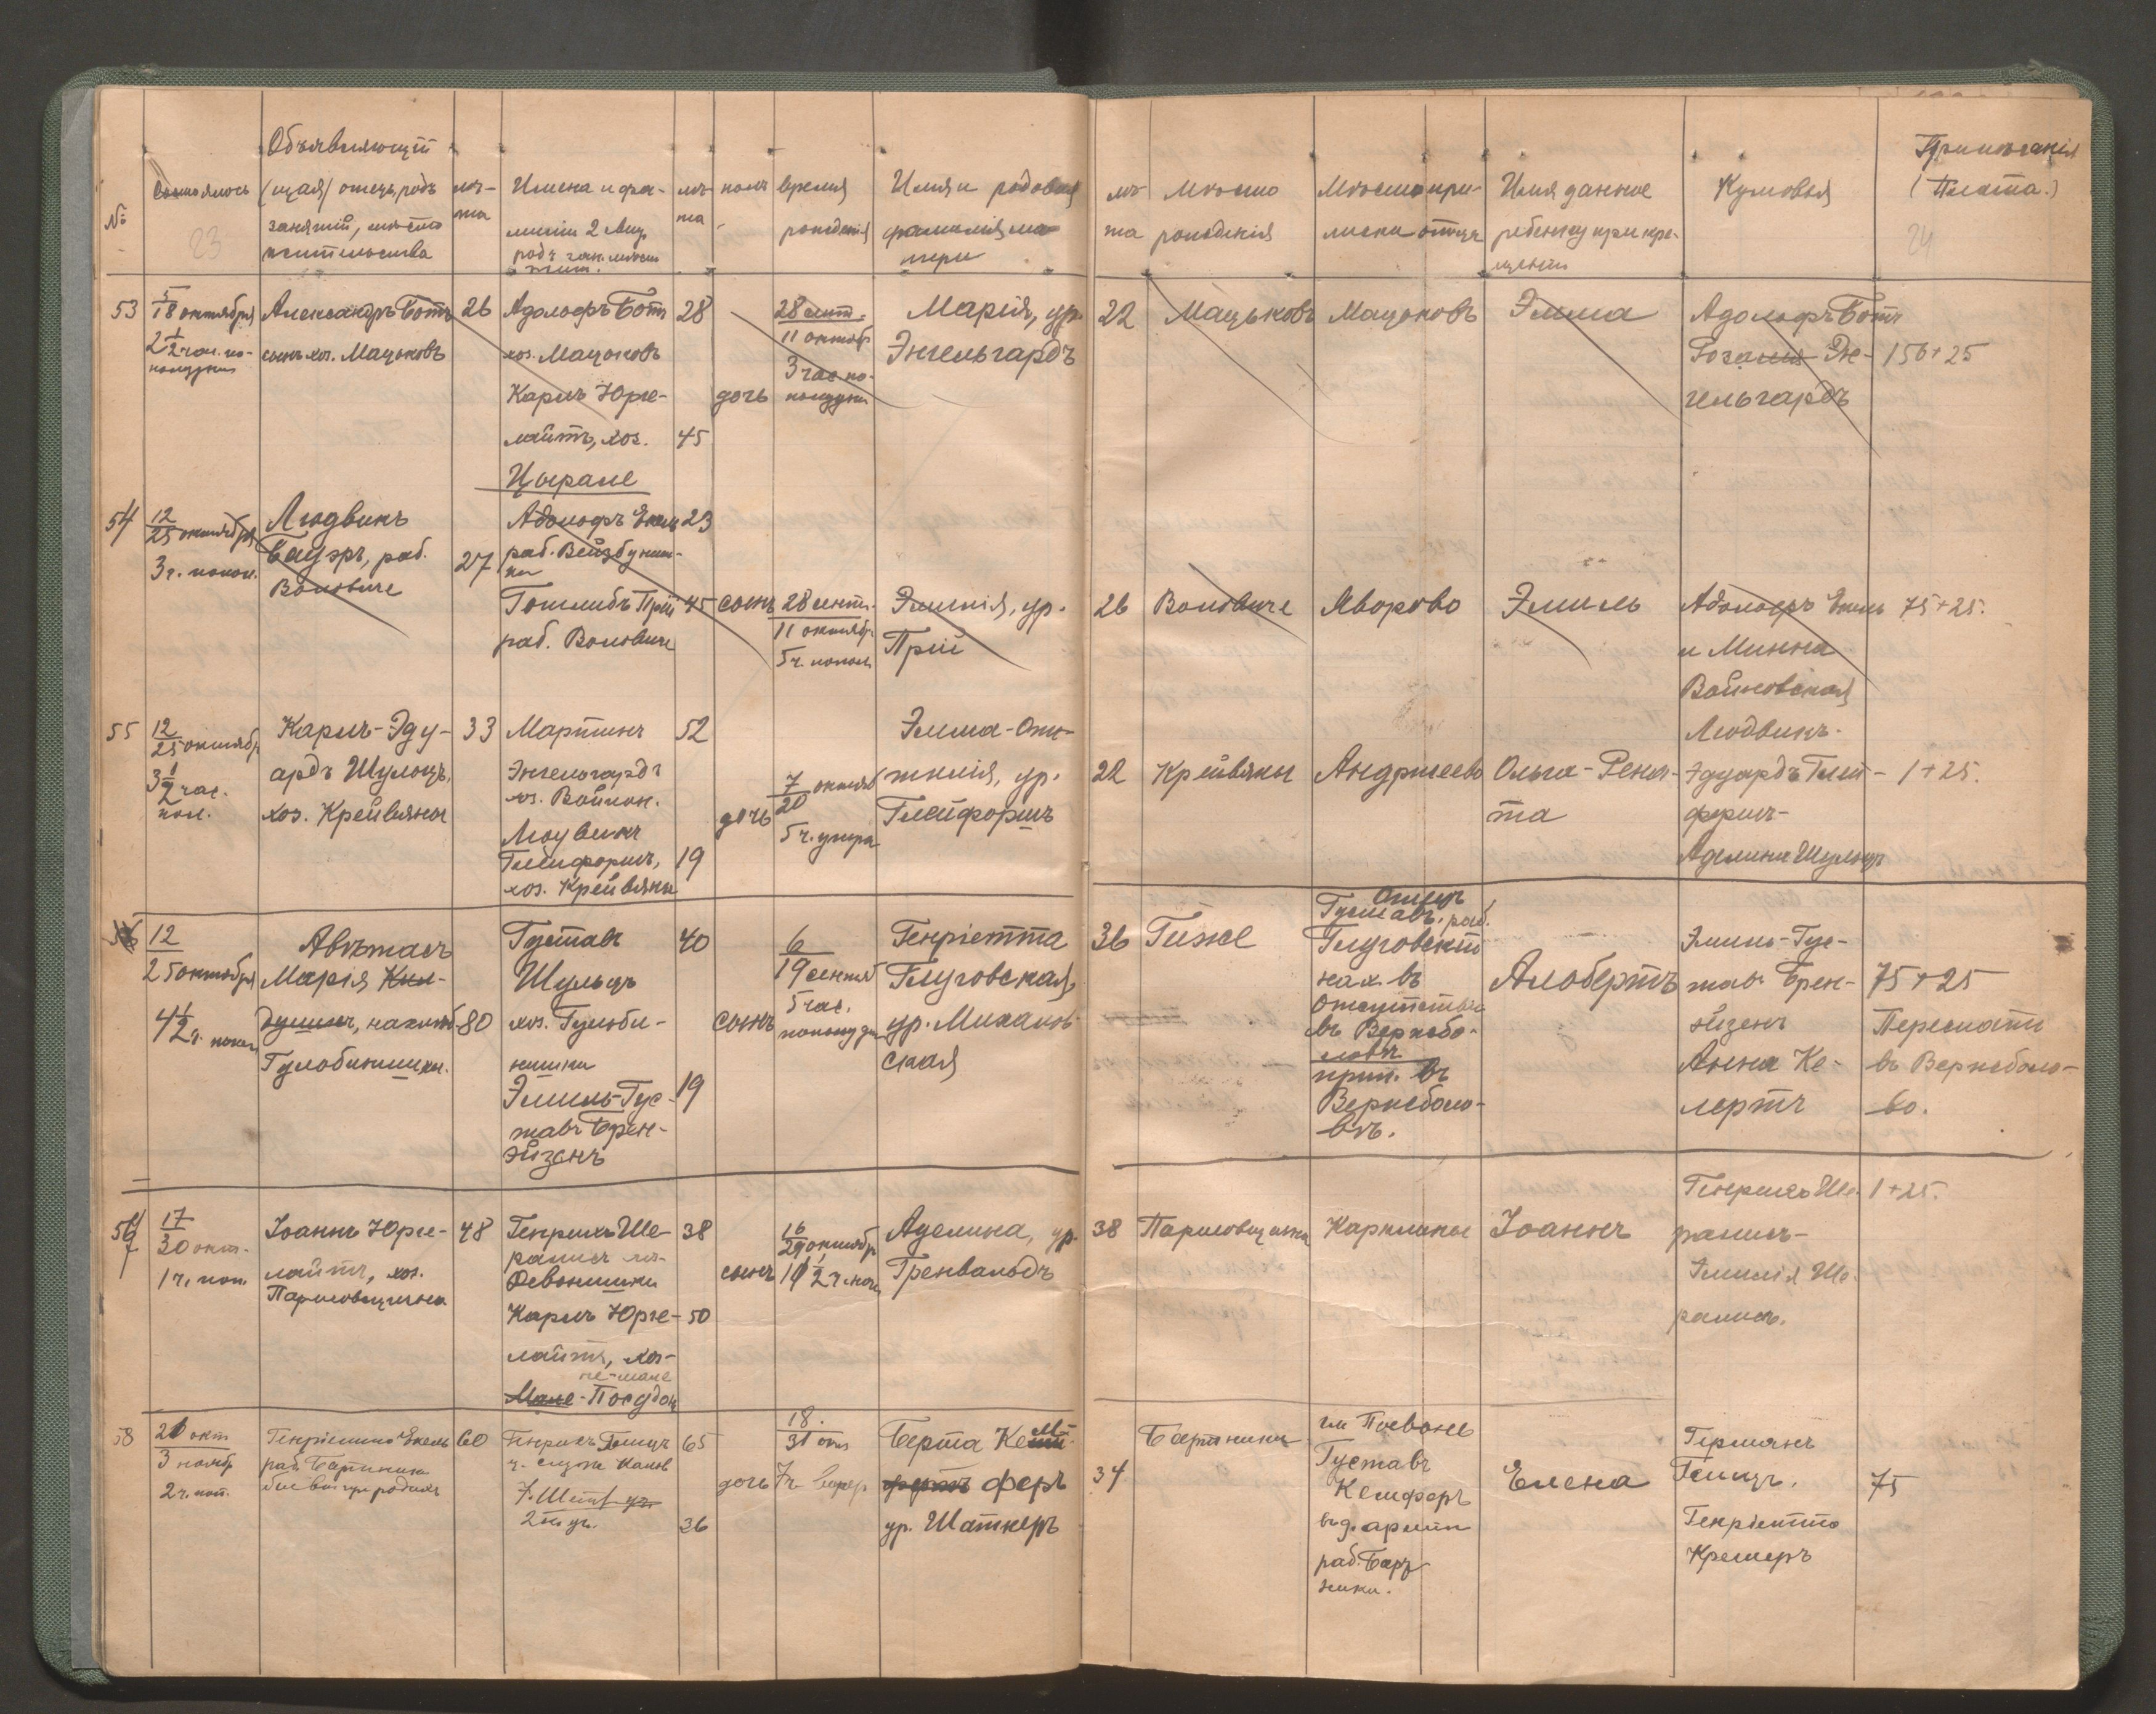 №
Состоялось
Объявляющій
(щая) отецъ, родъ
занятій, мѣсто
жительства
лѣ-
та
Имена и фа-
миліи 2 лицъ
родъ зан. мѣсто
жит.
лѣ-
та
полъ
время
рожденія
Имя и родовая
фамилія ма-
тери
лѣ-
та
Мѣсто
рожденія
Мѣсто при-
писки отца
Имя данное
ребенку при кре-
щеніи
Кумовья
Примѣчанія
(Плата.)
23
24
53
5
18 октября
2 1/2 час. по-
полудни
Александръ Ботъ
сынъ хоз. Мацьковъ
26
Адольфъ Ботъ
хоз. Мацьковъ
Карлъ Юрге-
лайтъ, хоз.
Цырале
28
45
дочь
28 сент.
11 октяб
3 час. по-
полудни
Марія, ур.
Энгельгардъ
22
Мацьковъ
Мацьковъ
Эмма
Адольфъ Ботъ
Розалія Эн-
гельгардъ
150+25
54
12
25 октября
3 ч. попол.
Людвикъ
Бауэръ, раб.
Воловиче
27
Адольфъ Екель
раб. Вейзбуниш-
ки
Готлибъ Прій
раб. Воловиче
23
45
сынъ
28 сент.
11 октябр.
5 ч. попол
Эмилія, ур.
Прій
26
Воловиче
Яворово
Эмиль
Адольфъ Екель
и Минна
Войновская
75+25.
55
12
25 октябр
3 1/2 час.
пол.
Карлъ-Эду-
ардъ Шульцъ,
хоз. Крейвяны
33
Мартинъ
Энгельгардъ
хоз. Войпон.
Людвикъ
Глейфоршъ,
хоз. Крейвяны
52
19
дочь
7
20 октяб
5 ч. утра
Эмма-Оти-
тилія, ур.
Глейфоршъ
22
Крейвяны
Андржеево
Ольга-Рена-
та
Людвикъ-
Эдуардъ Глей-
форшъ-
Аделина Шульцъ
1+25.
56
12
25 октября
4 1/2 ч. попол
Августа
Марія Кин-
душъ, нахлѣб.
Гульбинишки.
80
Густавъ
Шульцъ
хоз. Гульби-
нишки
Эмиль-Гус-
тавъ Брен-
эйзенъ
40
19
сынъ
6
19 сентяб
5 час.
пополудни
Генріетта
Глуговская,
ур. Михалов-
ская
36
Гиже
Отецъ
Густавъ, раб.
Глуговскій
нах. въ
отсутствіи
въ Вержбо-
ловѣ
прип. въ
Вержболо-
вѣ.
Альбертъ
Эмиль-Гус-
тавъ Брен-
эйзенъ
Анна Ке-
лертъ
75+25
Переслать
въ Вержболо-
во.
57
17
30 окт.
1 ч. поп.
Іоаннъ Юрге-
лайтъ, хоз.
Паршовщизна
48
Генрихъ Ше-
Карлъ Юрге-
лайтъ, хоз-
Мале-Поєдон
38
50
сынъ
16
29 октябр
10 1/2 ч. ночи
Аделина, ур.
Гренвальдъ
38
Паршовщизна
Карклины
Іоаннъ
Генрихъ Ше-
Эмилія Ше-
1+25.
58
21 окт
3 ноябр
2 ч. поп.
Генріетта Екель
раб. Бартники
60
Генрихъ Геницъ
65
36
дочь
18.
31 окт
7 ч. вечер.
Берта Кем-
феръ
ур. Шаткеръ
34
Бартники
гм Поевонь
Густавъ
Кемферъ
въ д. арміи
раб. Барт-
ники.
Елена
Германъ
Геницъ.
Генріетта
Кремеръ
75